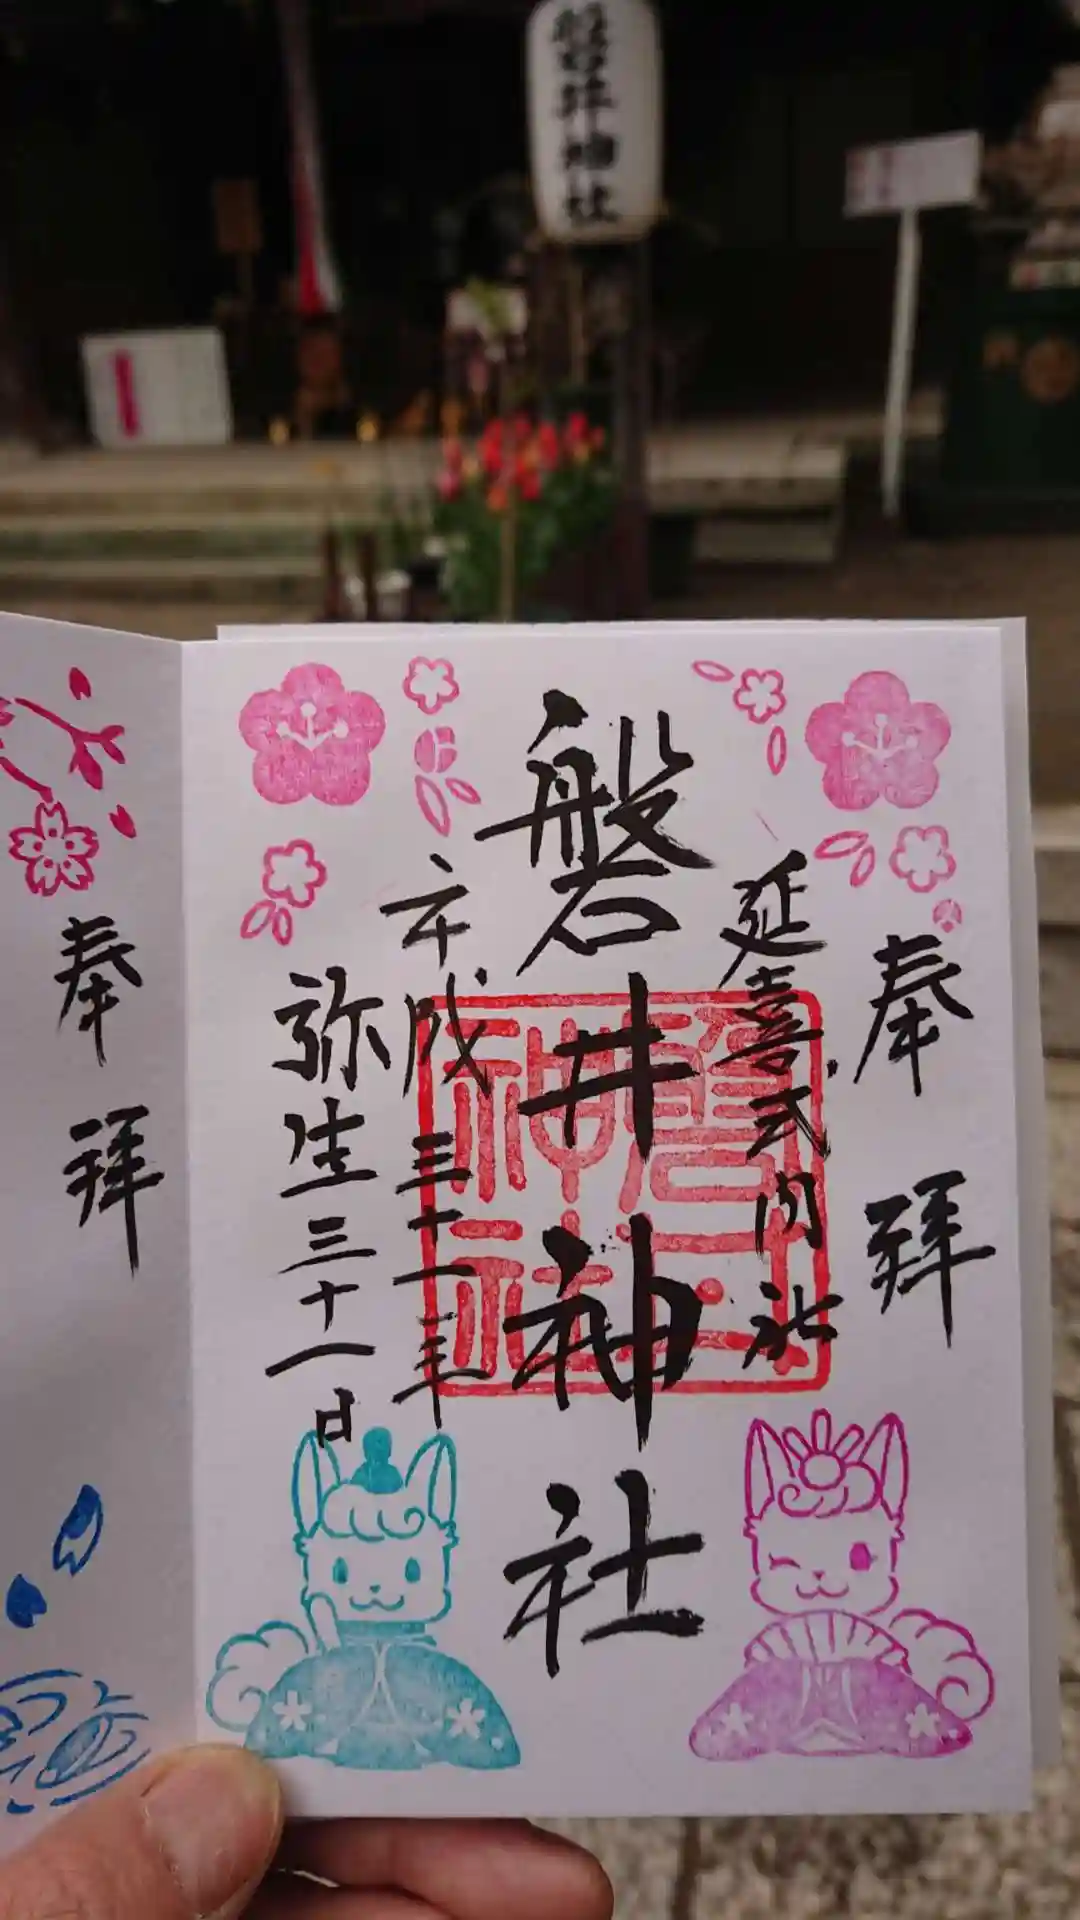 磐井神社
奉拝
延喜式内社
磐井神社
平成三十一年
弥生三十一日
奉拝